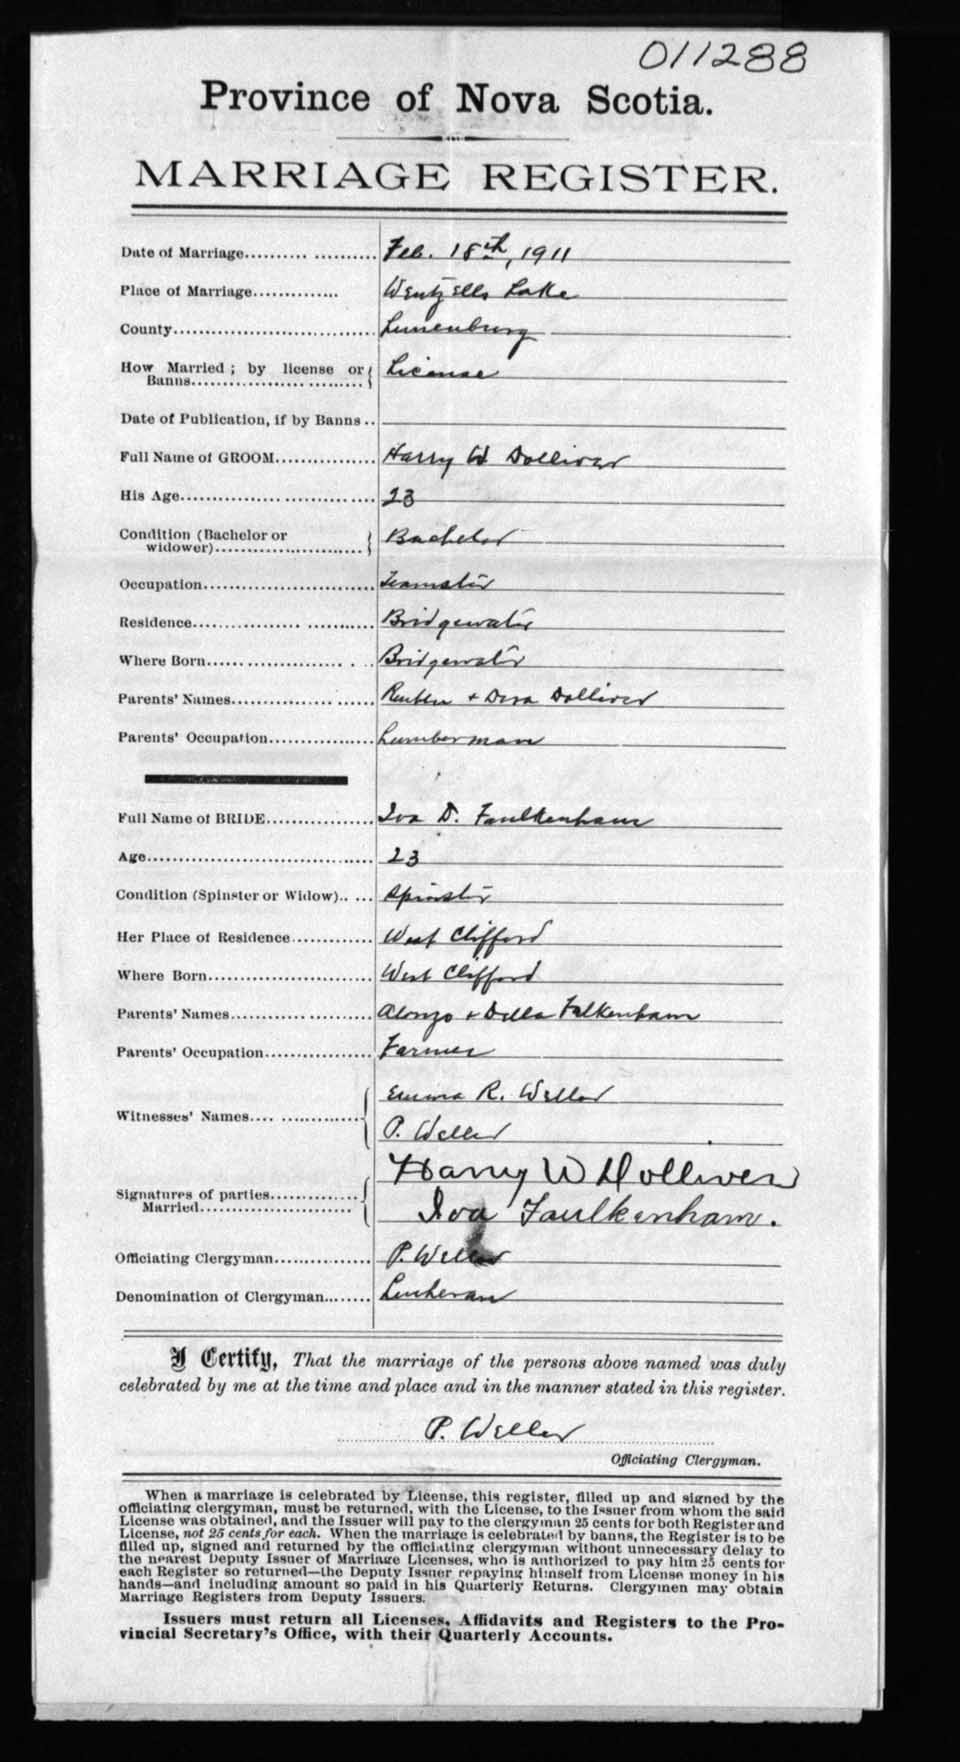 011288
Province of Nova Scotia.
MARRIAGE REGISTER.
Date of Marriage.......... ........... Feb. 18th, 1911
Place of Marriage.............. Wentzells Lake
County................................ Lunenburg
How Married ; by license or Banns.................. .......... License
Date of Publication, if by Banns ..
Full Name of GROOM................ Harry W Dolliver
His Age.................. ................ 23
Condition (Bachelor or widower).............. ............. Bachelor
Occupation........................... Teamster
Residence................ ........... Bridgewater
Where Born....................... . ... Bridgewater
Parents' Names................. ...... Reuben + Dora Dolliver
Parents' Occupation.................. Lumberman
Full Name of BRIDE................ Iva D. Faulkenham
Age..................................... 23
Condition (Spinster or Widow).. ... Spinster
Her Place of Residence............. West Clifford
Where Born........................... West Clifford
Parents' Names............. .......... Alonzo + Della Falkenham
Parents' Occupation................. Farmer
Emma R. Weller
Witnesses' Names.... ..............
P. Weller
Harry W Dolliver
Signatures of parties.............. Married...........................
Iva Faulkenham.
Officiating Clergyman............... P. Weller
Denomination of Clergyman........ Lutheran
I Certify, That the marriage of the persons above named was duly
celebrated by me at the time and place and in the manner stated in this register.
P. Weller
Officiating Clergyman.
When a marriage is celebrated by License, this register, filled up and signed by the
officiating clergyman, must be returned, with the License, to the Issuer from whom the said
License was obtained, and the Issuer will pay to the clergyman 25 cents for both Register and
License, not 25 cents for each. When the marriage is celebrated by banns, the Register is to be
filled up, signed and returned by the officiating clergyman without unnecessary delay to
the nearest Deputy Issuer of Marriage Licenses, who is authorized to pay him 25 cents for
each Register so returned—the Deputy Issuer repaying himself from License money in his
hands—and including amount so paid in his Quarterly Returns. Clergymen may obtain
Marriage Registers from Deputy Issuers.
Issuers must return all Licenses, Affidavits and Registers to the Pro-
vincial Secretary's Office, with their Quarterly Accounts.